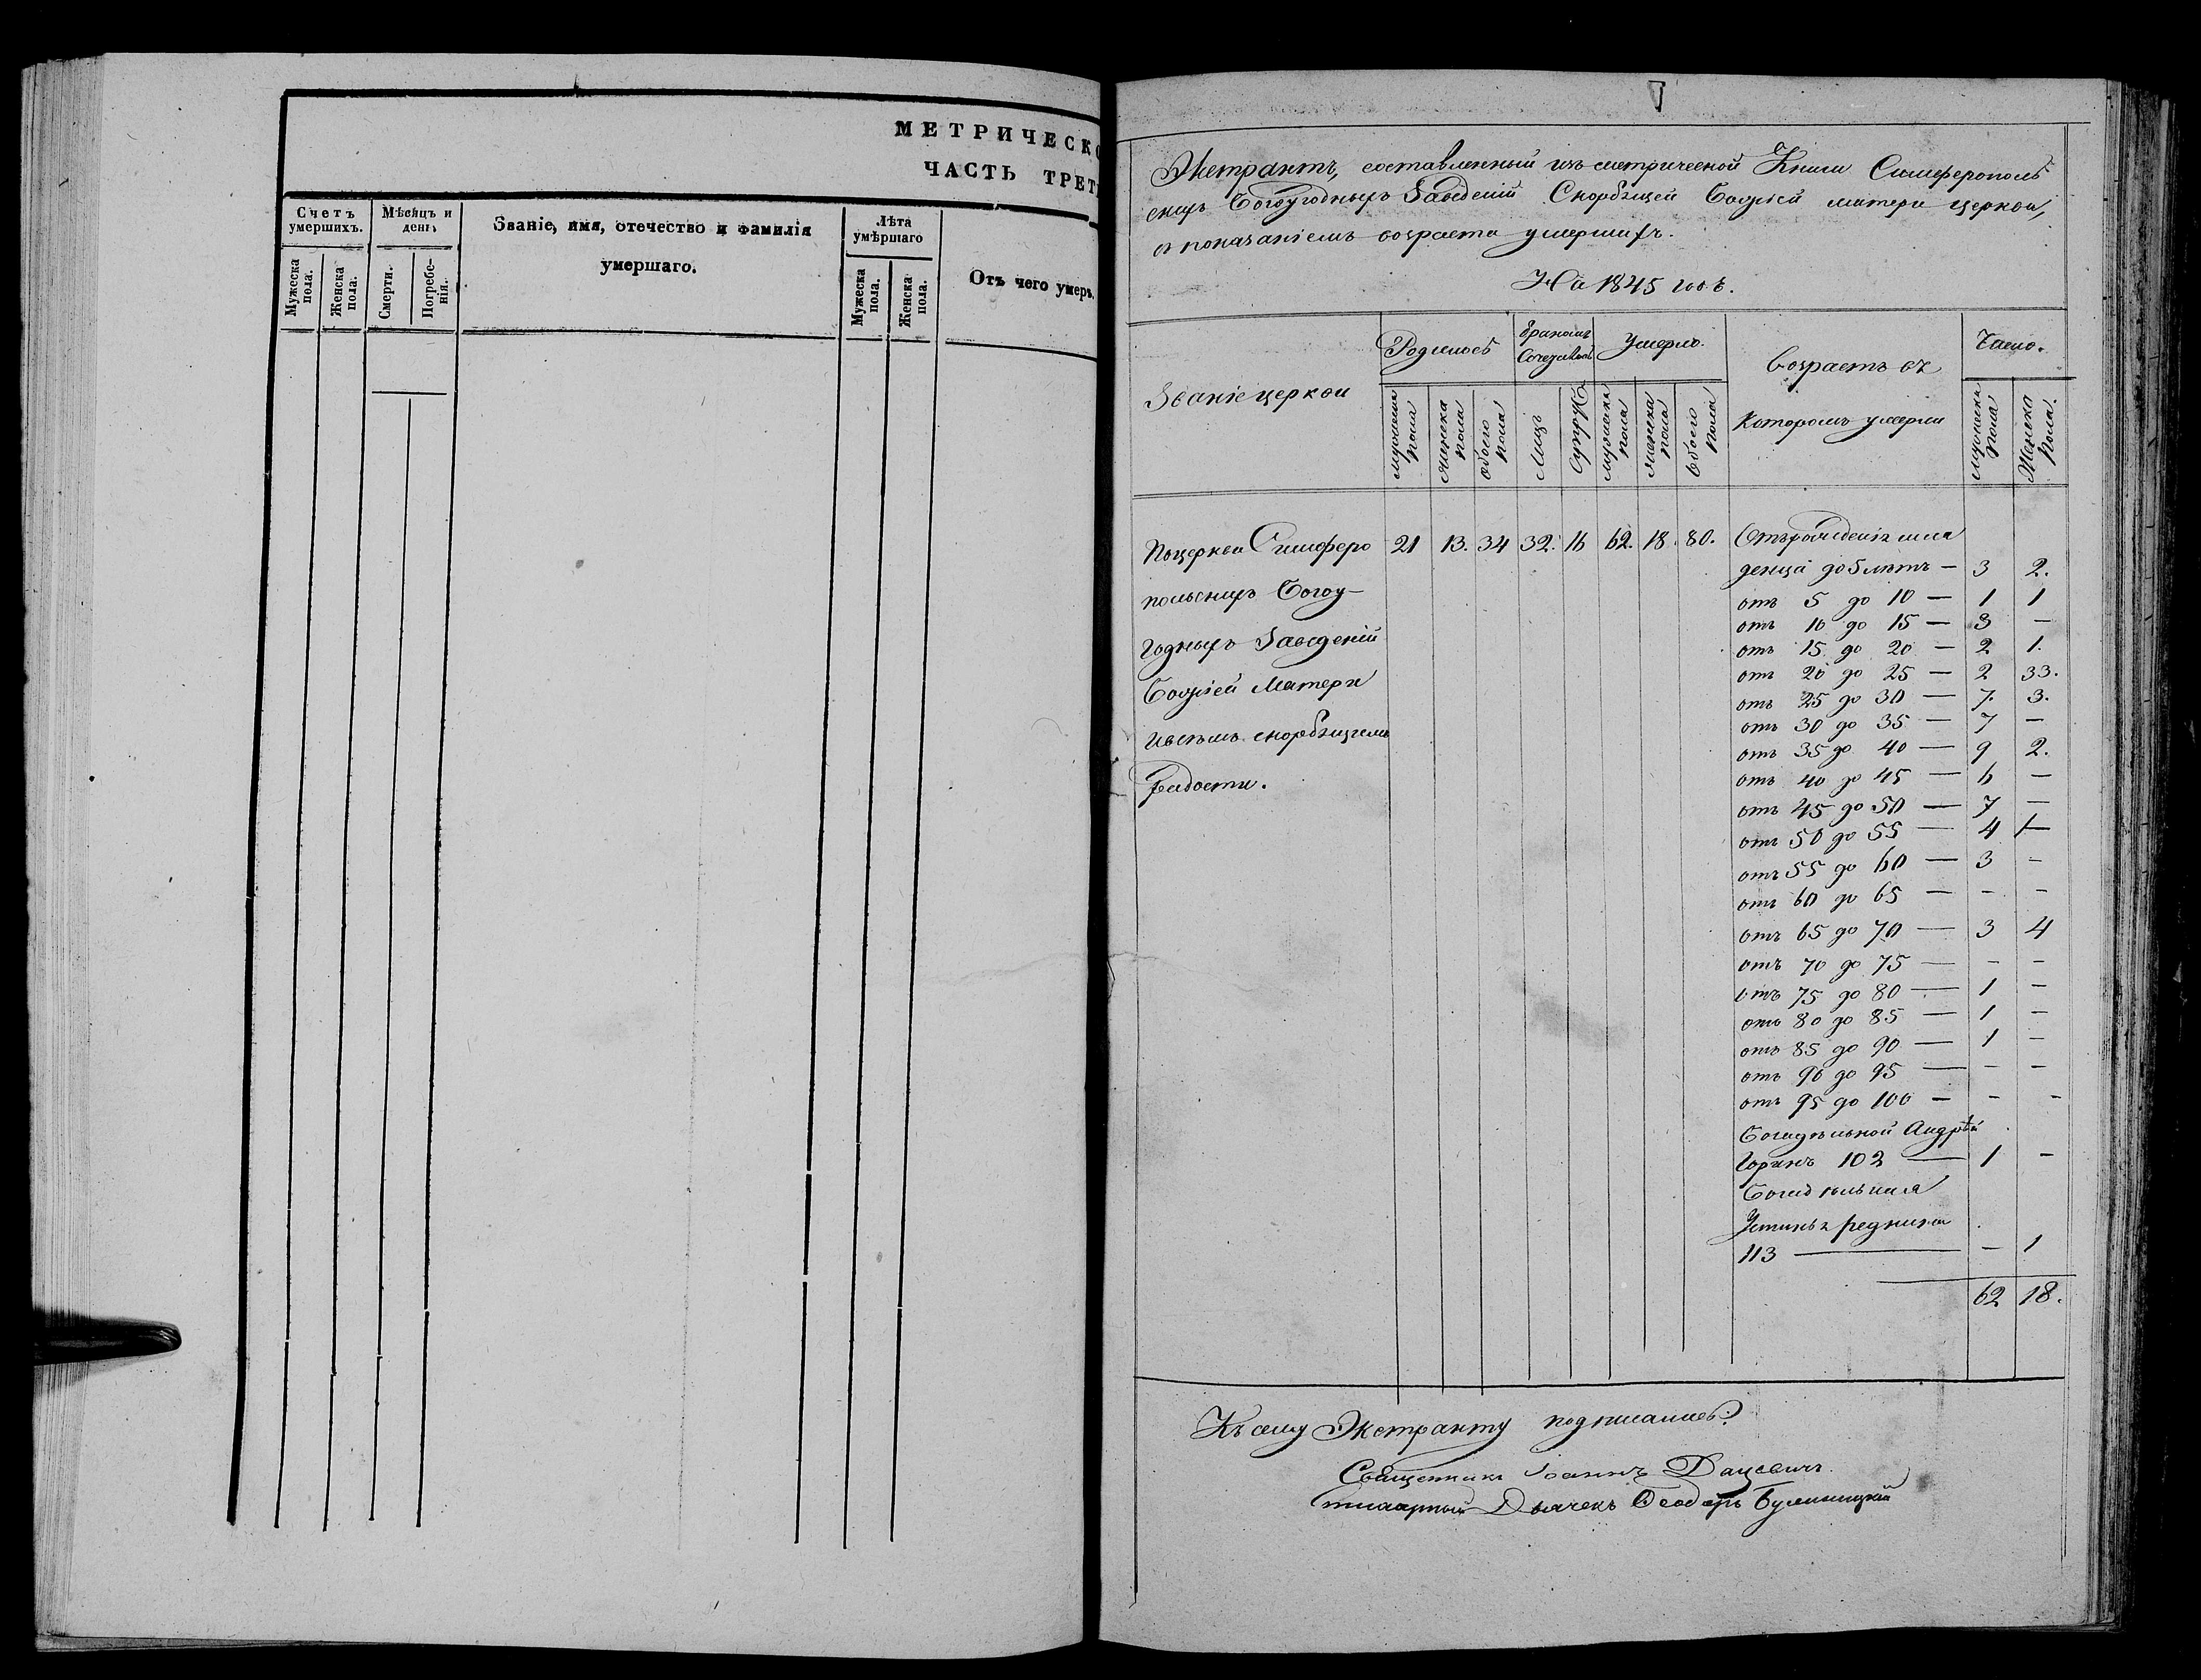 МЕТРИЧЕСКО
ЧАСТЬ ТРЕТ
Счетъ умершихъ.
Мѣсяцъ и день
Званіе, имя, отечество и фамилія
умершаго.
Лѣта умѣршаго
Отъ чего умеръ.
Мужеска пола.
Женска пола.
Смерти.
Погребе-
нія.
Мужеска пола.
Женска пола.
Экстрактъ, составленный изъ метрической Книги Симферополь
скихъ Богоугодныхъ Заведеній Скорбящей Божіей матери церкви,
съ показаніемъ возраста умершихъ.
На 1845 годъ.
Званіе церкви
Родилось
бракомъ Сочеталось
Умерло.
Возрастъ въ
которомъ умерли
Число.
мужеска пола
женска пола
обоего пола
Лицъ
Супруж
мужеска пола
женска пола
обоего пола
мужеска пола
Женска пола.
По церкви Симферо 21 13. 34 32. 16 62. 18. 80.
польскихъ Богоу-
годныхъ Заведеній
Божіей Матери
всѣхъ скорбящихъ
радости.
Отъ рожденія мла
денца до 5 лѣтъ — 3 2.
отъ 5 до 10 — 1 1
отъ 10 до 15 — 3 —
отъ 15 до 20 — 2 1.
отъ 20 до 25 — 2 33.
отъ 25 до 30 — 7. 3.
отъ 30 до 35 — 7 —
отъ 35 до 40 — 9 2.
отъ 40 до 45 — 6 —
отъ 45 до 50 — 7 —
отъ 50 до 55 — 4 1—
отъ 55 до 60 — 3 -
отъ 60 до 65 — - -
отъ 65 до 70 — 3 4
отъ 70 до 75 — - -
отъ 75 до 80 — 1 -
отъ 80 до 85 — 1 -
отъ 85 до 90 — 1 -
отъ 90 до 95 — - -
отъ 95 до 100 — - -
Богадѣльной Андрѣй
Горинъ 102 — 1 -
Богадѣльная
Устинья
113 — - 1
62 18.
Къ сему Экстракту подписались:
Священникъ Іоаннъ Дацевичъ
Дьячекъ Ѳеодоръ